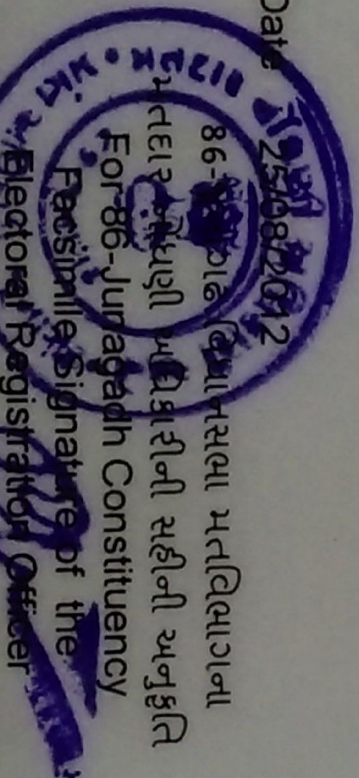 Date 25/08/2012
86- વિધાનસભા મતવિભાગના
મતદાર નોંધણી અધિકારીની સહીની અનુકૃતિ
For 86-Junagadh Constituency
Facsimile Signature of the
Electoral Registration Officer